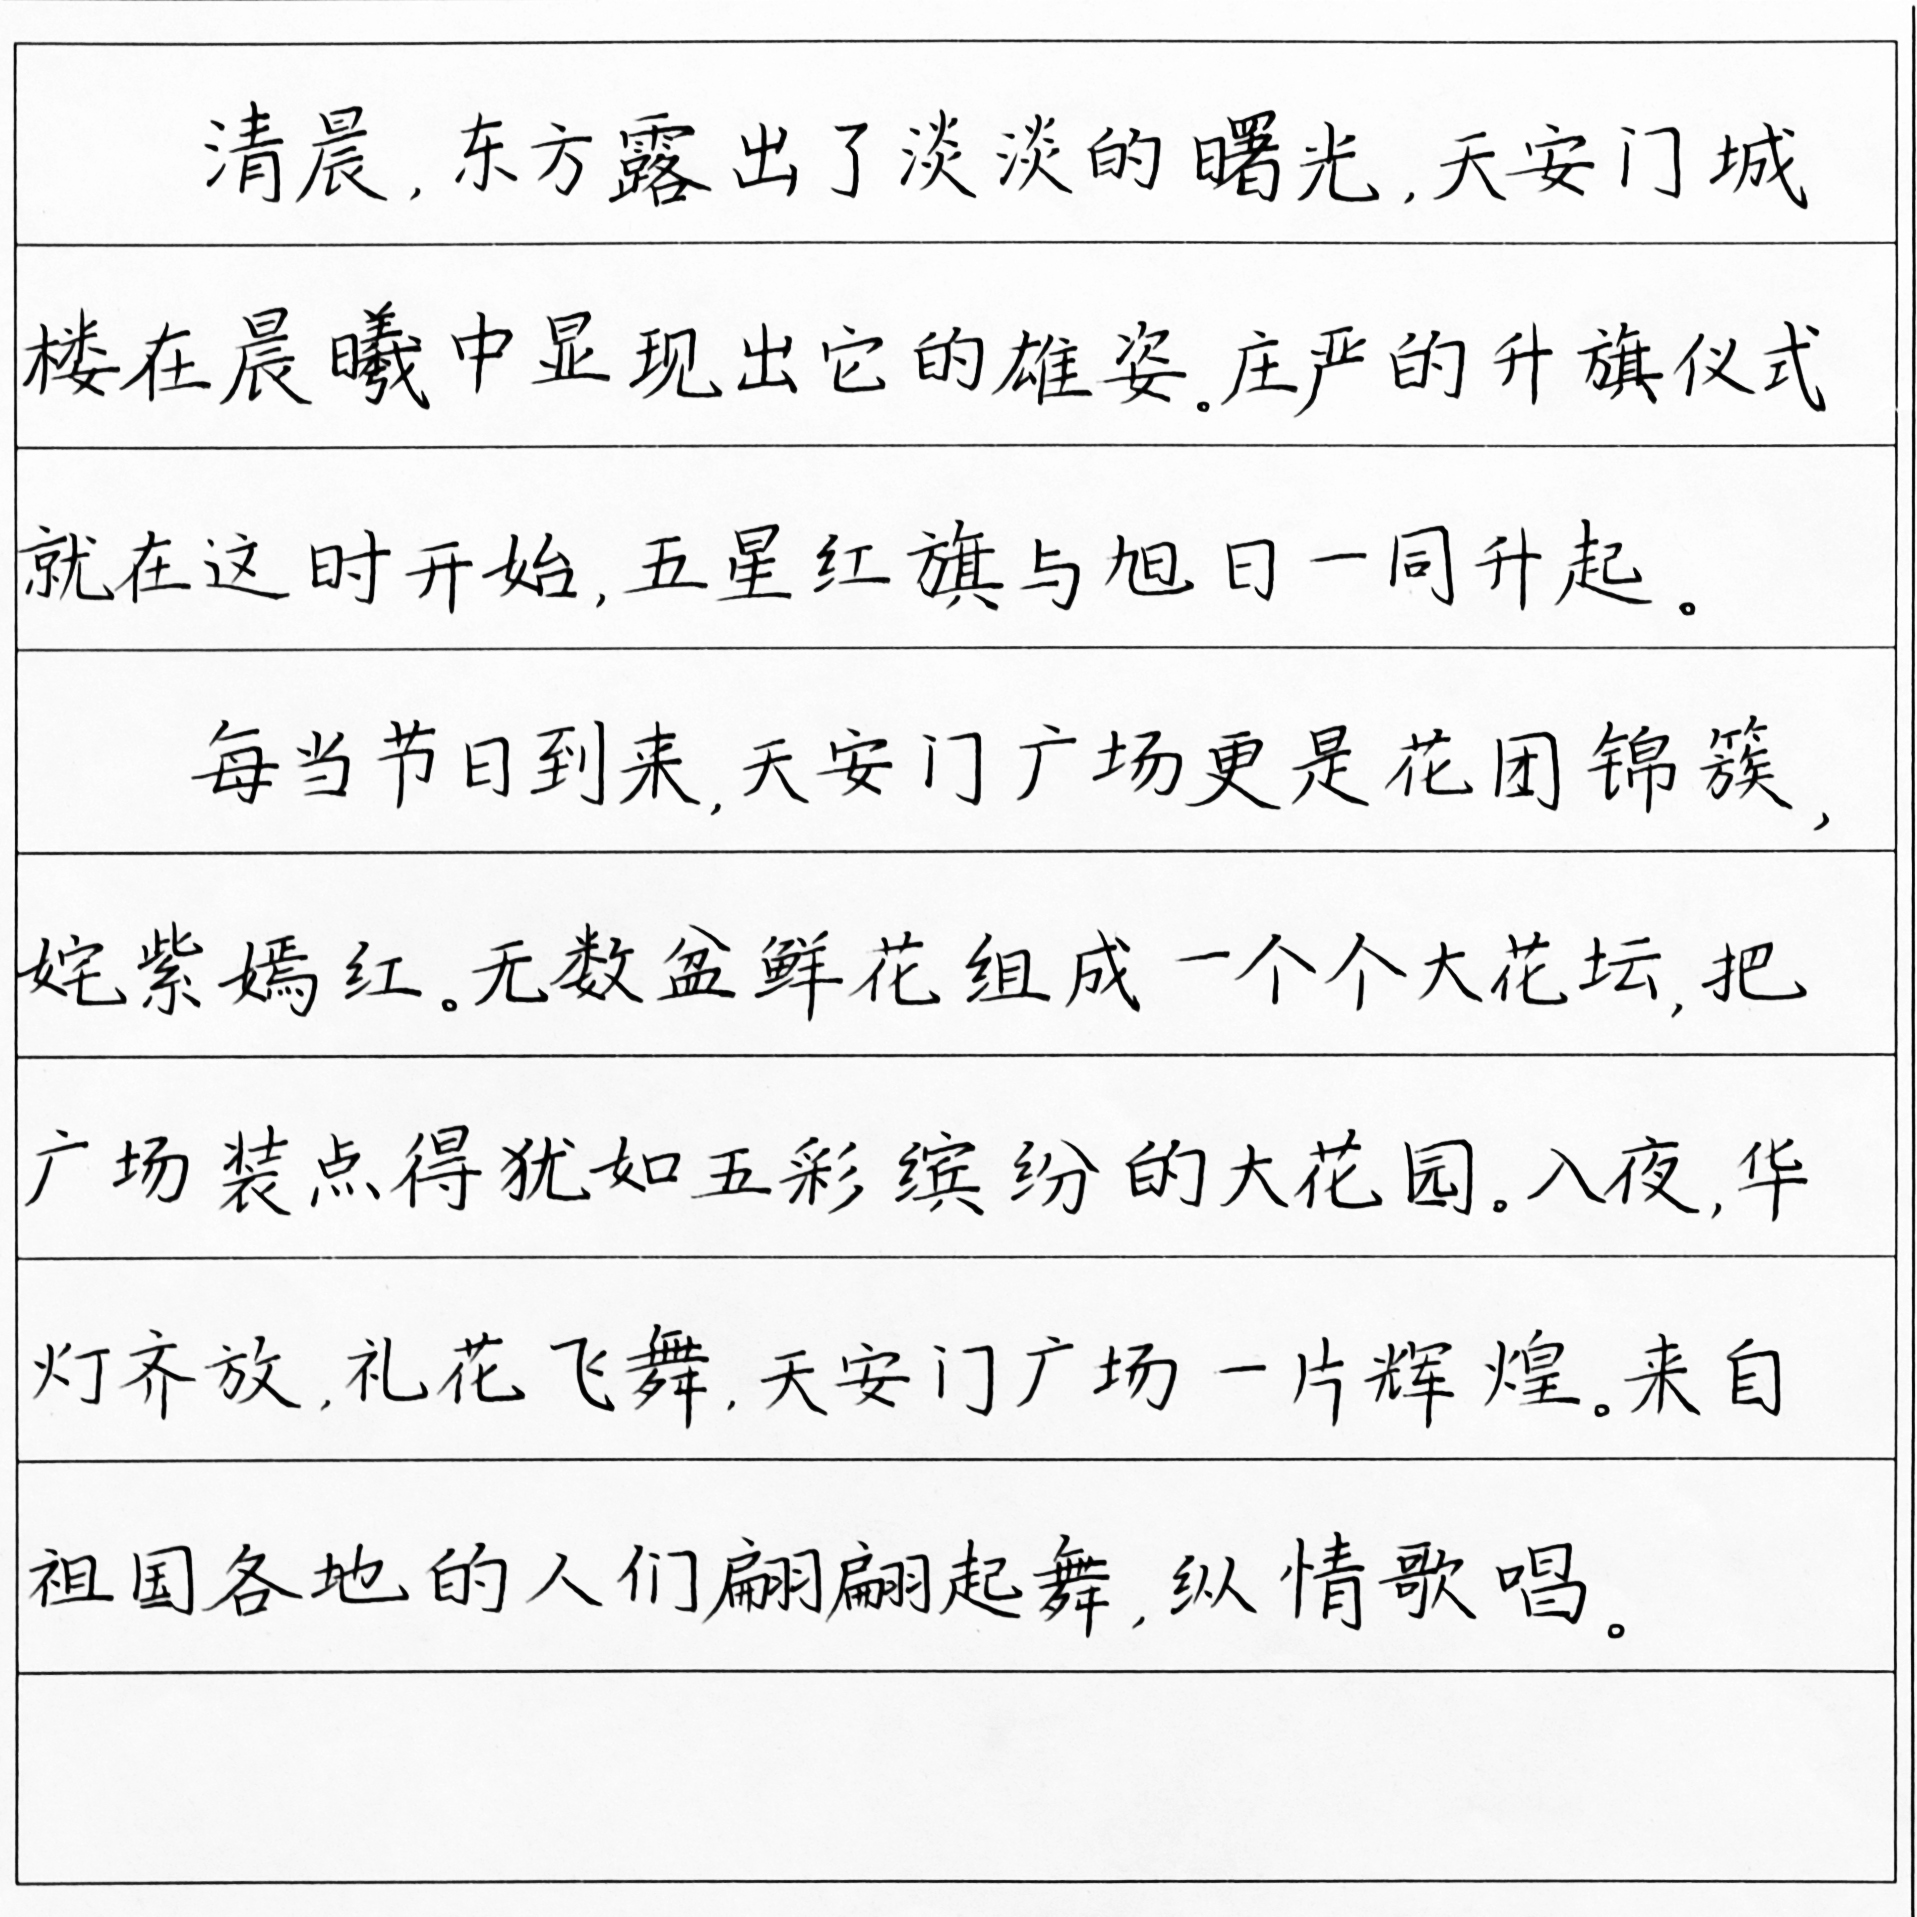 清晨,东方露出了淡淡的曙光,天安门城
楼在晨曦中显现出它的雄姿。庄严的升旗仪式
就在这时开始,五星红旗与旭日一同升起。
每当节日到来,天安门广场更是花团锦簇,
姹紫嫣红。无数盆鲜花组成一个个大花坛,把
广场装点得犹如五彩缤纷的大花园。入夜,华
灯齐放,礼花飞舞,天安门广场一片辉煌。来自
祖国各地的人们翩翩起舞,纵情歌唱。